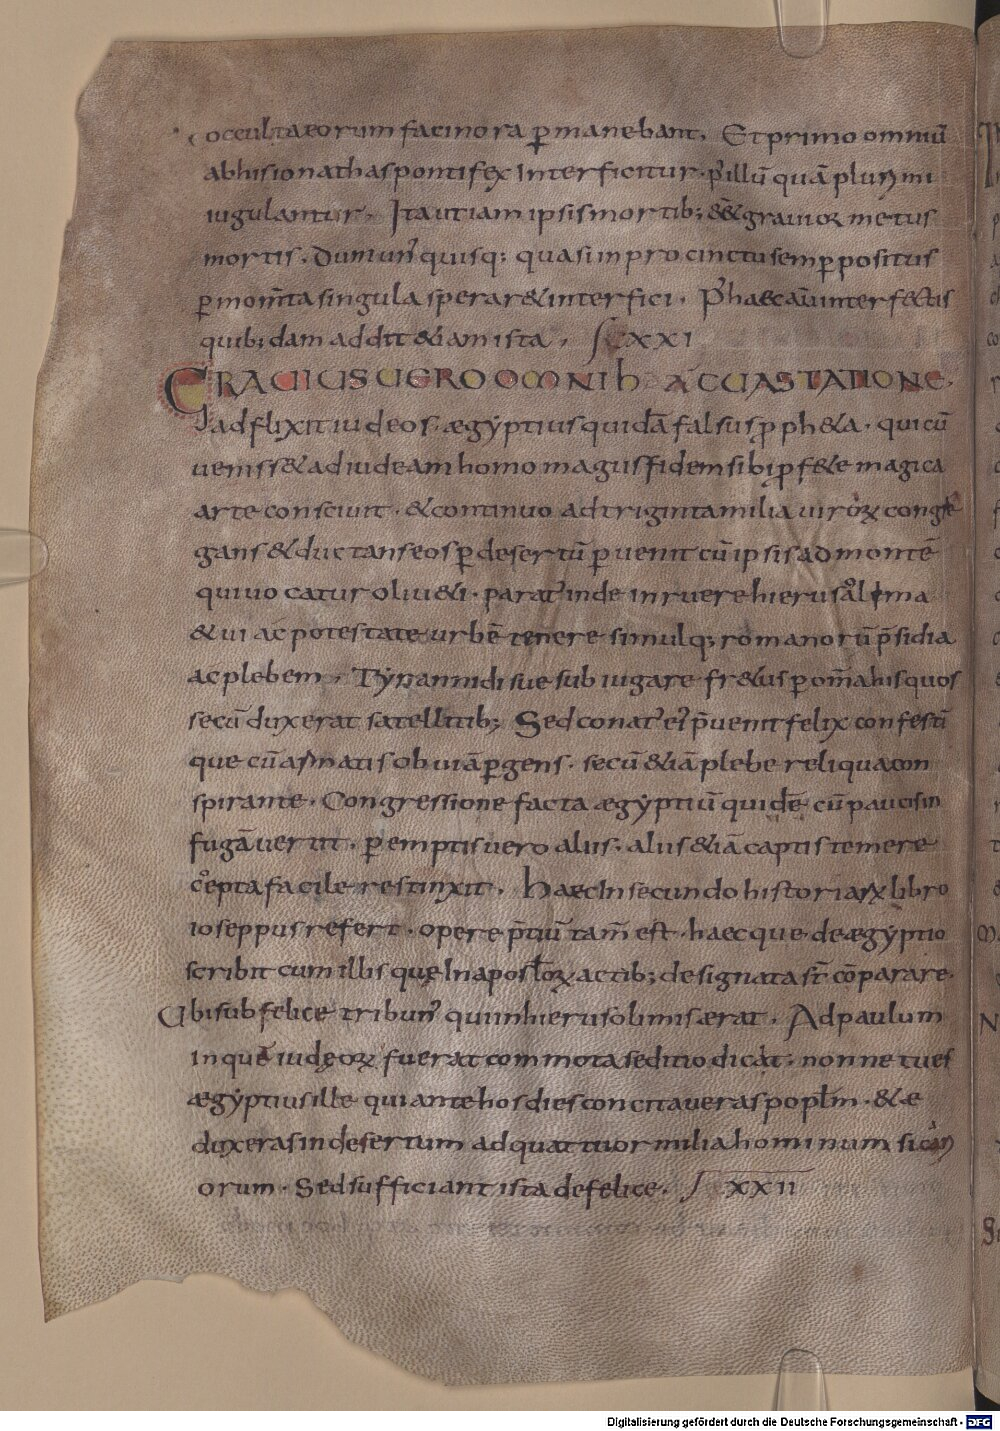 occulta eorum facinora p̄manebant. Et primo omniū
ab his ionathas pontifex interficitur. p' illū quā plurimi
iugulantur. Ita ut iam ipsis mortib; ēē grauior metus
mortis. dum un' quisq; quasi in procinctu semp̄ positus
p̄ mom̄ta singula sperar& interfici. P' haec aūt interfectis
quib;dam addit &iam ista. XXI
GRAUIUS UERO OMNIB; A UASTATIONE.
adflixit iudeos. ægẏptius quidā falsus pph&a. qui cū
uenisset ad iudeam homo magus fidem sibi pf&e magica
arte consciuit. & continuo ad triginta milia uiroꝝ congre
gans & ductans eos p̄ desertū p̄uenit cū ipsis ad montē
qui uocatur oliu&i. parat' inde inruere hierusolima
& ui ac potestate urbē tenere simulq; romanorū p̄sidia
ac plebem. Tẏrannidi sue subiugare fr&us p̄ om̄a his quos
secū duxerat satellitib; Sed conat' ei' p̄uenit felix confestī
que cū armatis obuiā p̄gens. secū &iā plebe reliqua con
spirante. Congressione facta ægẏptiū quidē cū paucis in
fugā uertit. p̄emptis uero aliis. aliis &iā captis temere
c'epta facile restinxit. haec in secundo historiaꝝ libro
ioseppus refert. opere p̄tiū tam̄ est. haec que de ægẏptio
scribit cum illis que in apostl'oꝝ actib; designata st̄ cōparare.
Ubi sub felice tribun' qui in hierusolimis ærat. Ad paulum
in quē iudęoꝝ fuerat commota seditio dicat. nonne tu es
ægẏptius ille qui ante hos dies concitaueras popl̄m. & e
duxeras in desertum ad quattuor milia hominum sicari
orum. Sed sufficiant ista de felice. XXII
Digitalisierung gefördert durch die Deutsche Forschungsgemeinschaft - DFG